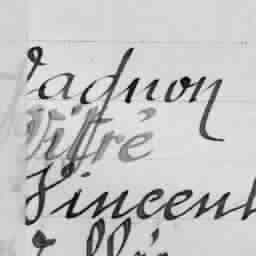 Vagnon
Vitré
Vincent